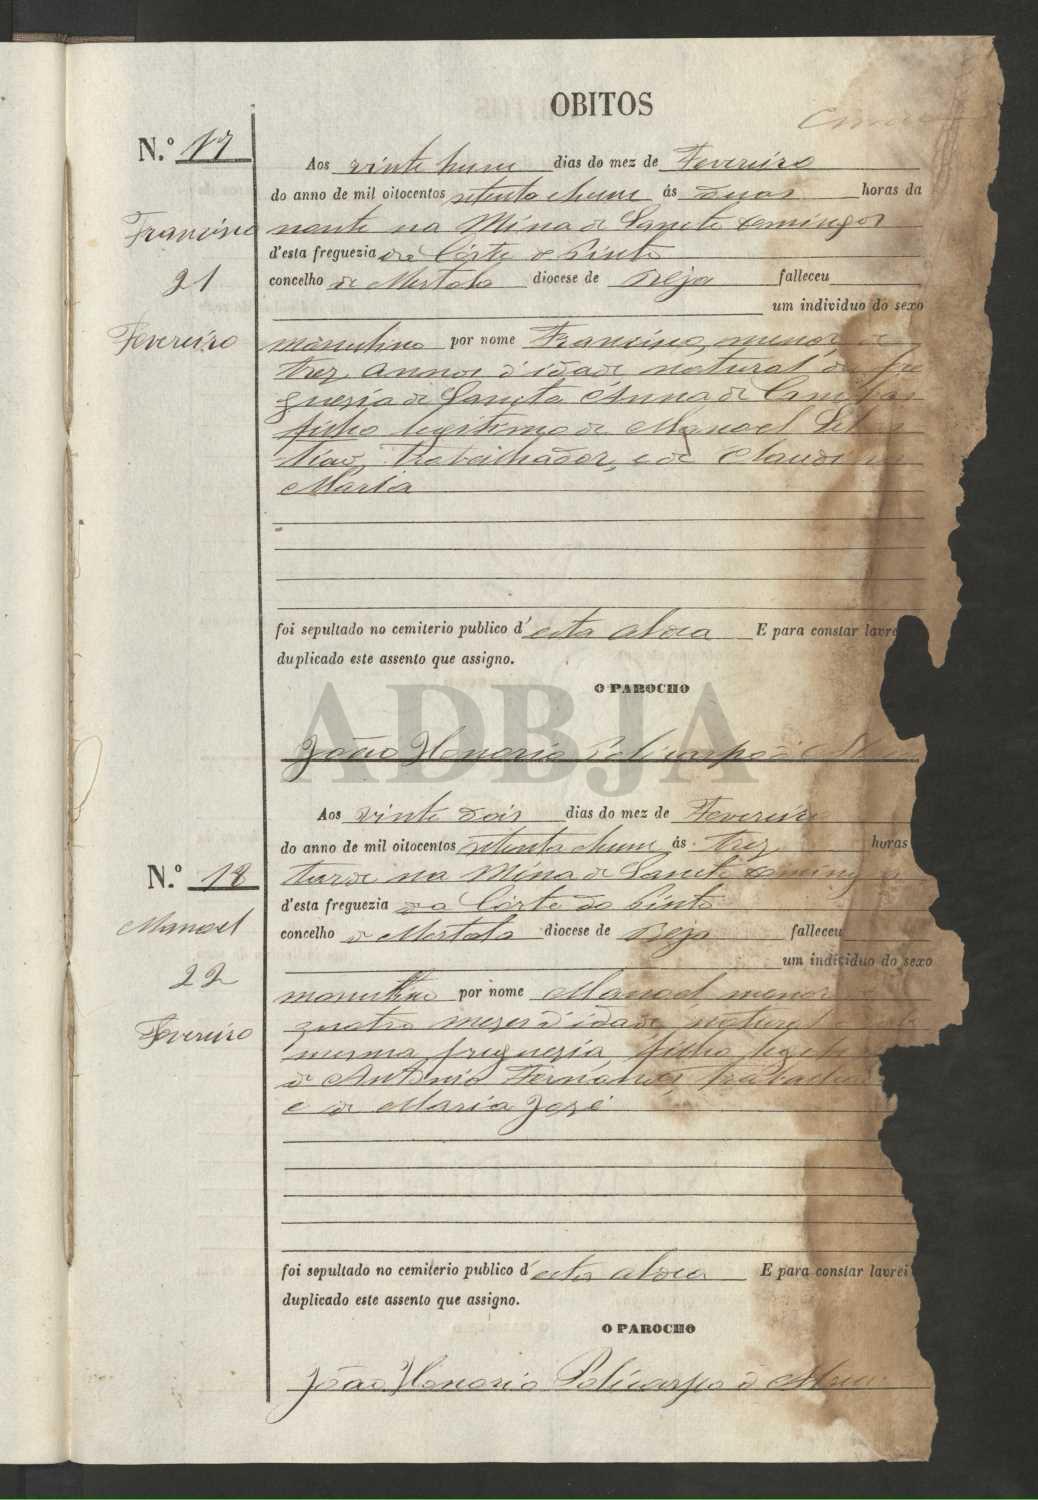 OBITOS
N.º 17
Aos vinte hum dias do mez de Fevereiro
do anno de mil oitocentos setenta ehum ás duas horas da
Francisco
noute na Mina de Sancto Domingos
d'esta freguezia de Côrte do Pinto
21
concelho de Mertola diocese de Beja falleceu
um individuo do sexo
Fevereiro
masculino por nome Francisco, menor de
trez annos d'idade natural da fre
guesia de Sancta Anna de Cambas
filho legitimo de Manoel Sebas
tiao, trabalhador, e de Claudina
Maria
foi sepultado no cemiterio publico d'esta aldea E para constar lavre
duplicado este assento que assigno.
O PAROCHO
ADBJA
João Honorio Policarpo d'
Aos vinte dois dias do mez de Fevereiro
do anno de mil oitocentos setenta ehum ás trez horas
N.º 18
tarde na Mina de Sancto Domingos
d'esta freguezia da Côrte do Pinto
Manoel
concelho de Mertola diocese de Beja falleceu
um individuo do sexo
22
masculino por nome Manoel menor
Fevereiro
quatro mezes d'idade, natural
mesma freguezia, filho legitimo
de Antonio Fernandes, trabalhador
e de Maria José
foi sepultado no cemiterio publico d'esta aldea E para constar lavrei
duplicado este assento que assigno.
O PAROCHO
João Honorio Policarpo d'